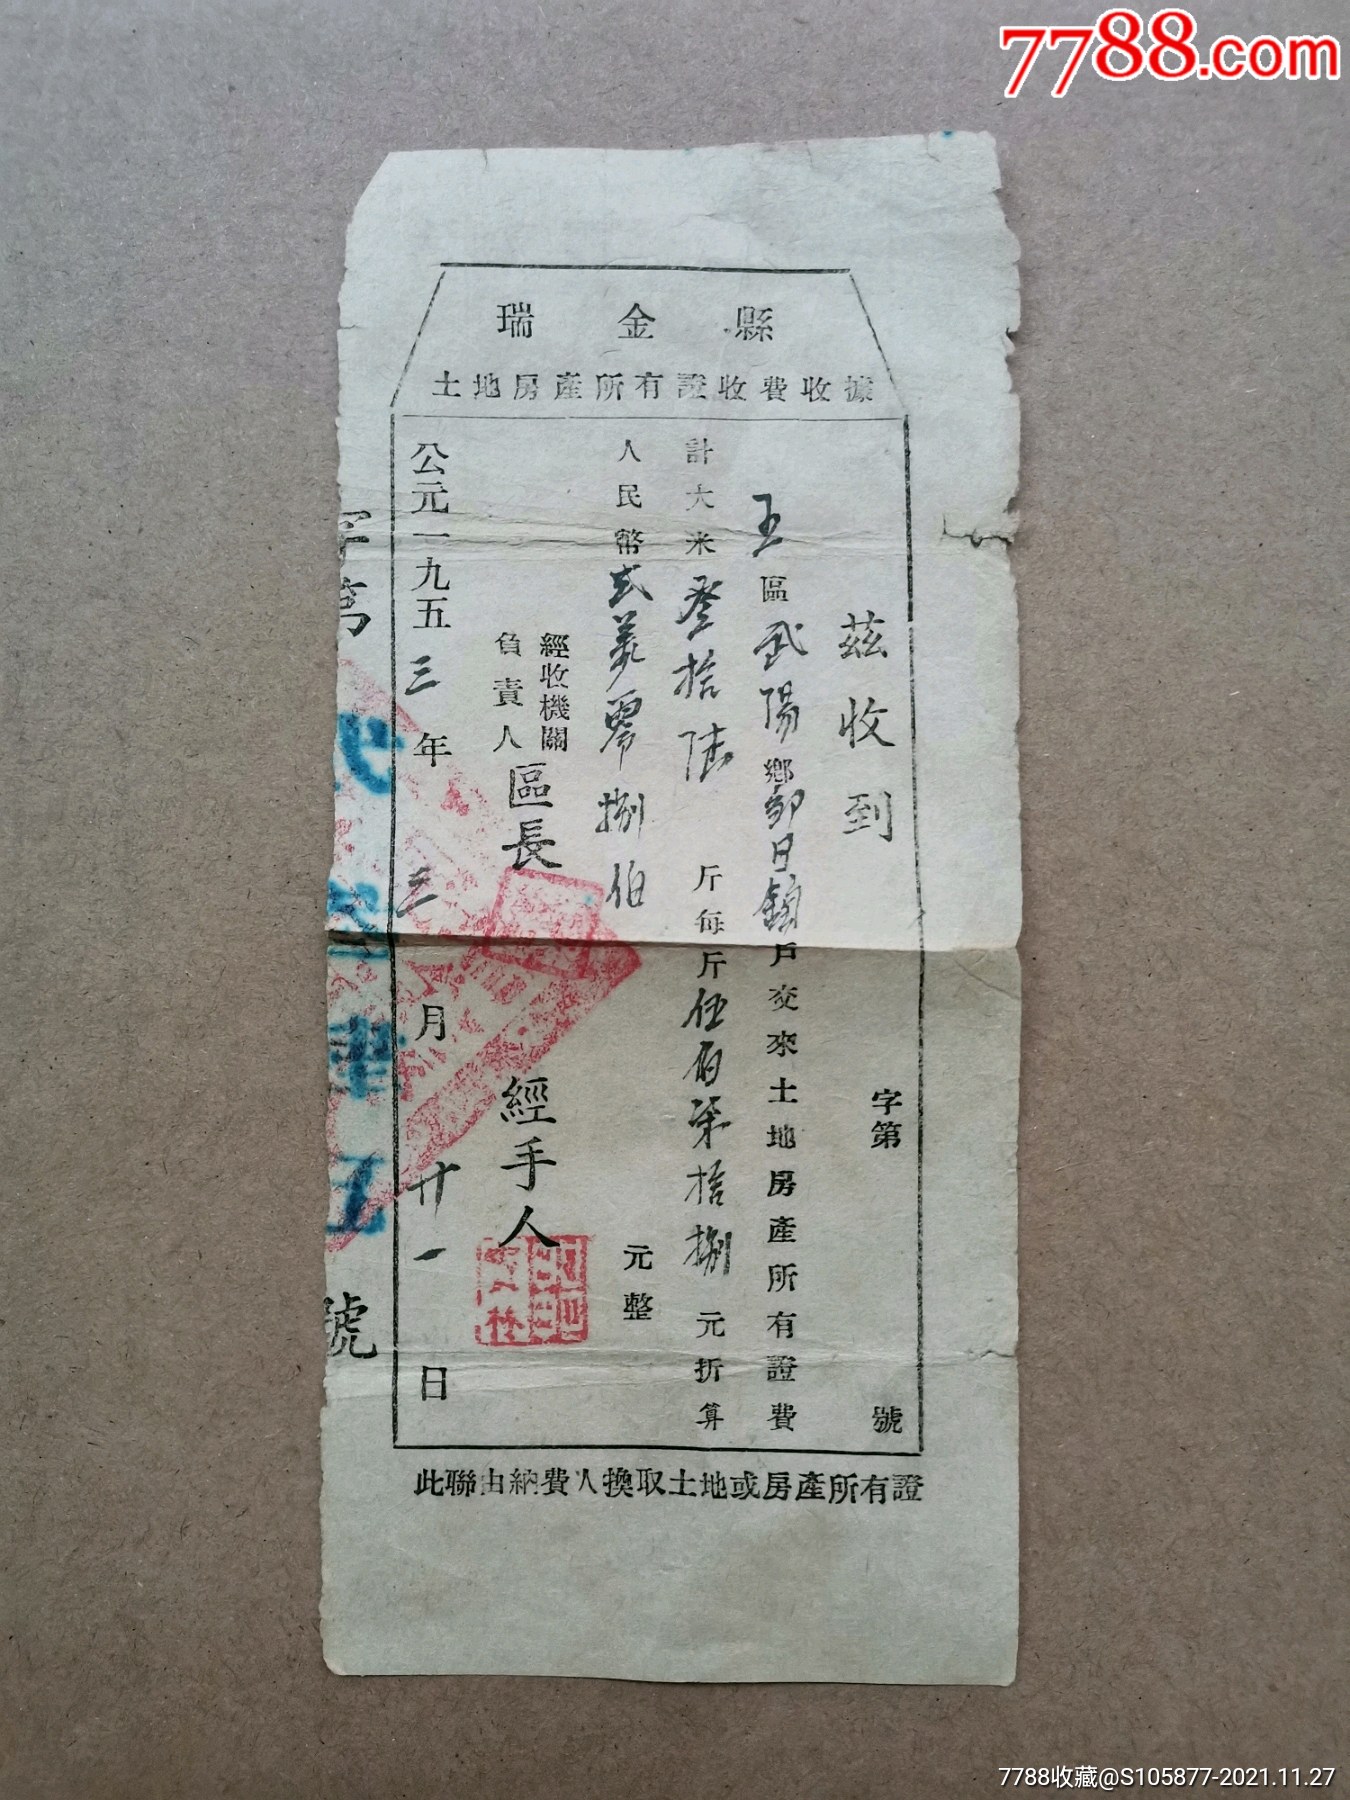 7788.com
瑞金縣
土地房產所有證收費收據
字第 號
茲收到
五區武陽鄉鄒日 戶交來土地房產所有證費
計大米叁拾陸斤每斤伍佰柒拾捌元折算
人民幣弍萬零捌佰元整
經收機關
負責人 區長 經手人
公元一九五三年三月廿一日
字第 號
此聯由納費人換取土地或房產所有證
7788收藏@S105877-2021.11.27